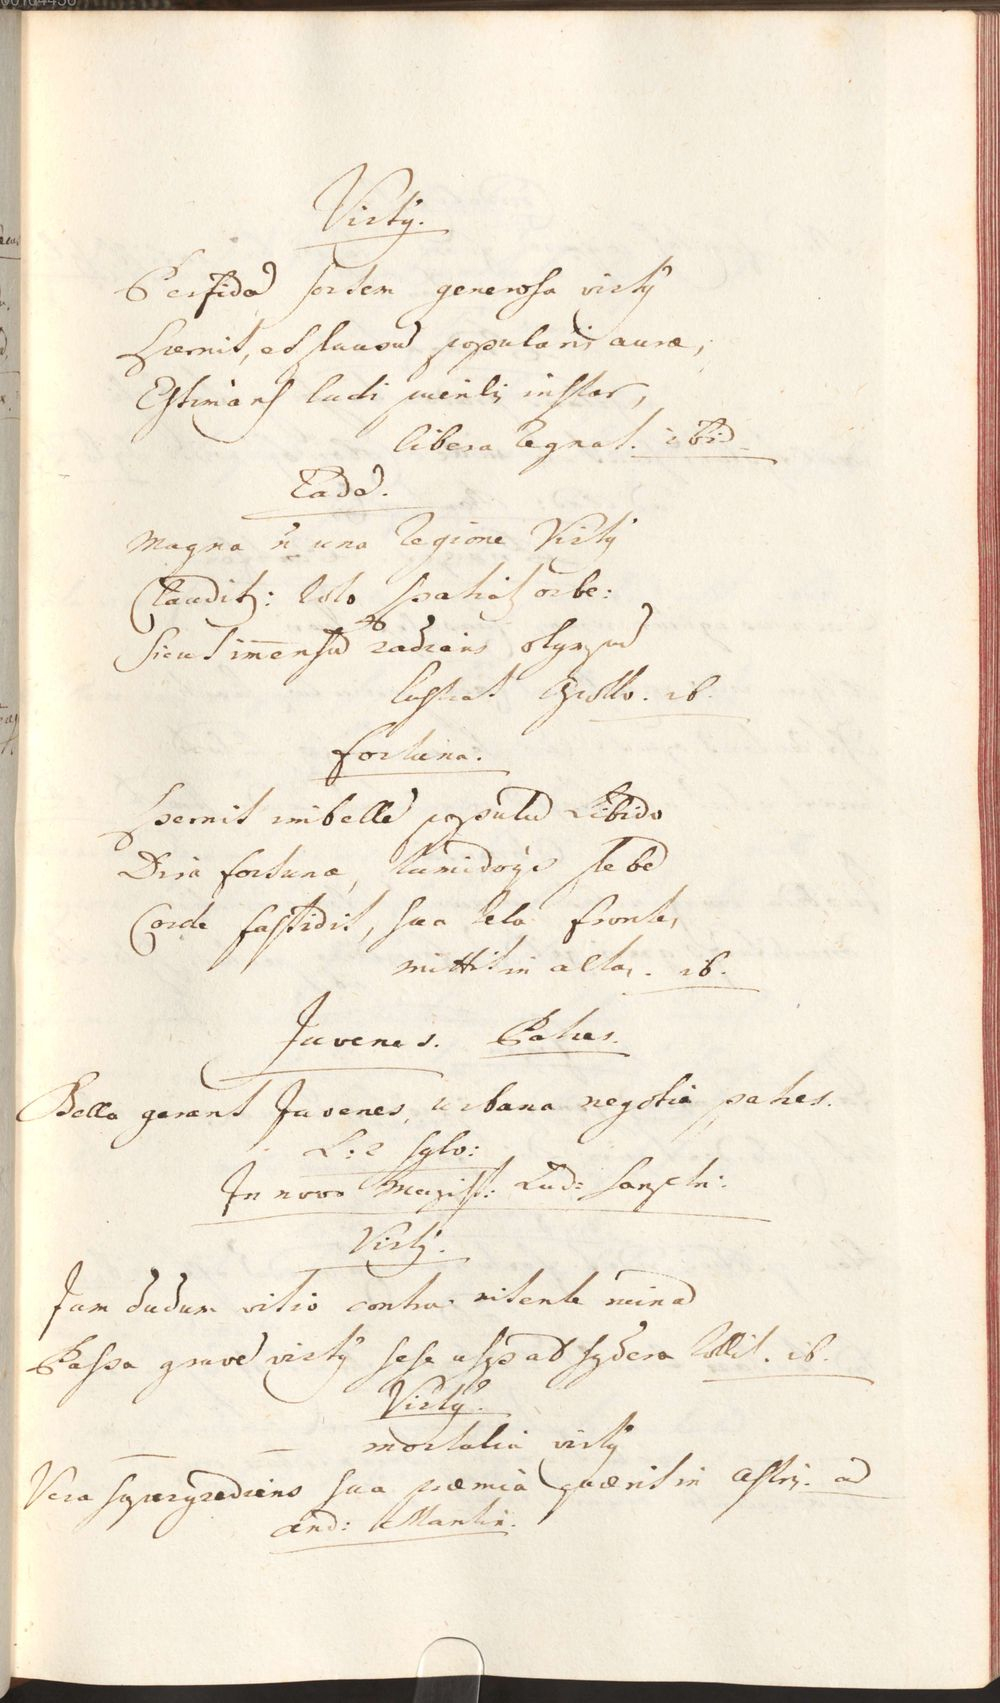 Virtus.
Perfidam sortem generosa virtus
Spernit, et fluxum popularis auræ,
Estimans ludi puerilis instar,
libera regnat. ibid.
Eadem.
Magna n̄ una regione Virtus
Clauditur: toto spatiatur orbe:
Sicut im̄ensum radians olympum
lustrat Apollo. ib.
fortuna.
Spernit imbellem populum Libido
Dira fortunæ, tumidoque plebem
Corde fastidit, sua tela frontes
mittit in altas. ib.
Juvenes. Patres.
Bella gerant Juvenes, urbana negotia patres.
L: 2 sylv:
In novo Magist: Lud:
Virtus.
Jam dudum vitio contra nitente ruinam
Passa gravem virtus sese usque ad sydera tollit. ib.
Virtus.
— — mortalia virtus
Vera supergrediens sua præmia quærit in Astris. ad
And: Mantin: